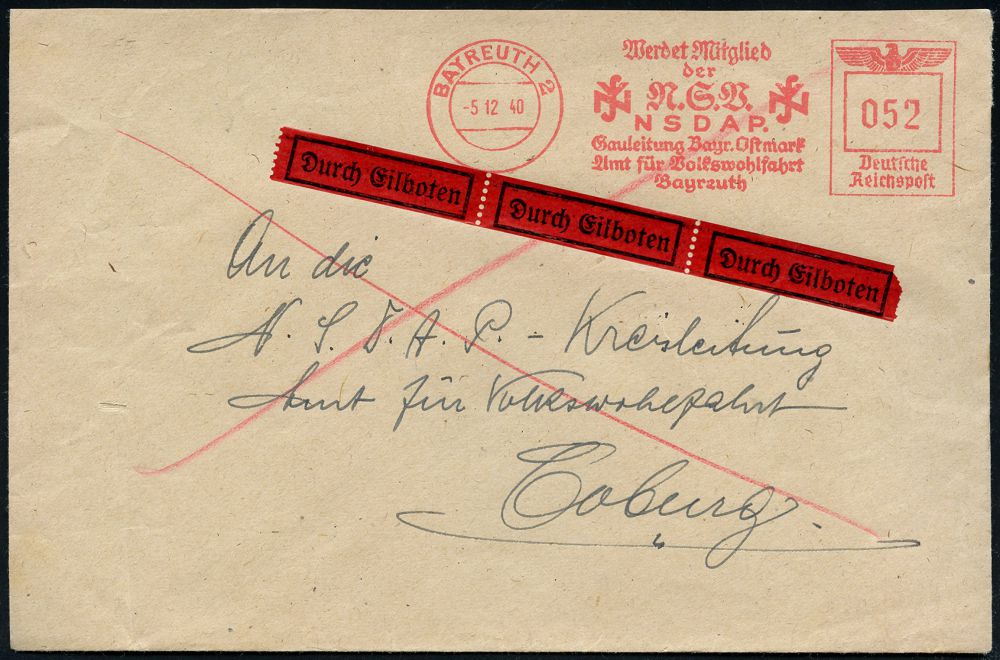 BAYREUTH 2
-5 12 40
Werdet Mitglied
der
N.S.V.
NSDAP.
Gauleitung Bayr. Ostmark
Amt für Volkswohlfahrt
Bayreuth
052
Deutsche
Reichspost
Durch Eilboten
Durch Eilboten
Durch Eilboten
An die
N. S. D. A. P. - Kreisleitung
Amt für Volkswohlfahrt
Coburg.